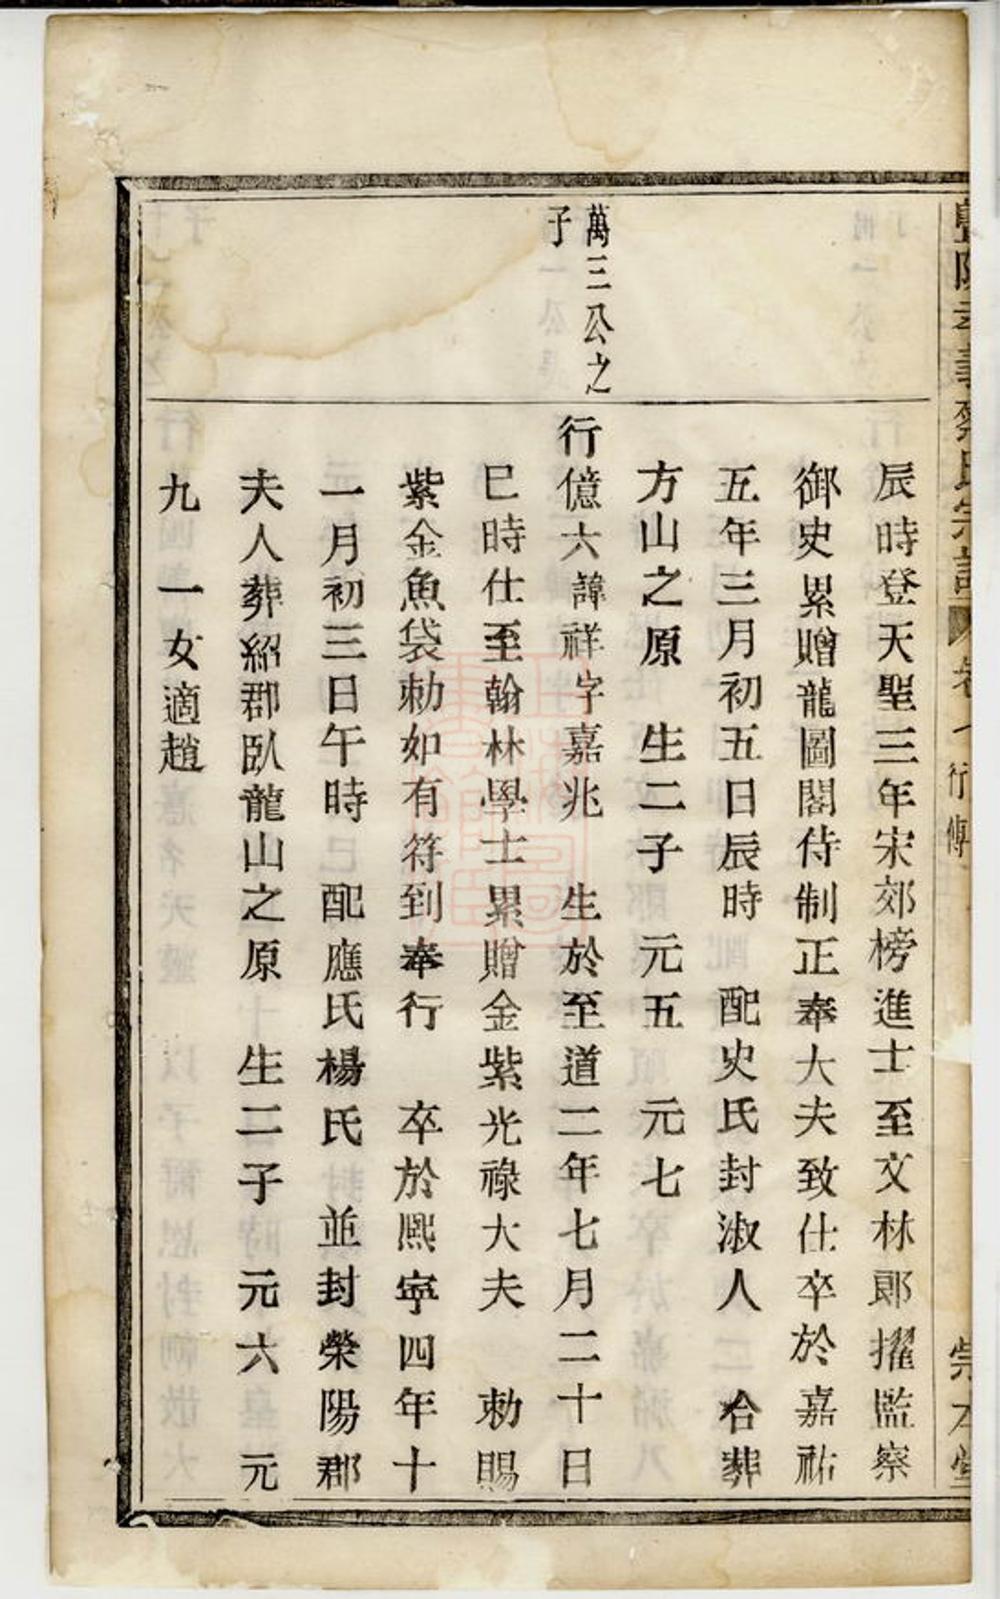 暨陽孝義蔡氏宗譜 卷 行傳 崇本堂
辰時登天聖三年宋郊榜進士至文林郎擢監察
御史累贈龍圖閣侍制正奉大夫致仕卒於嘉祐
五年三月初五日辰時 配史氏封淑人 合葬
方山之原 生二子 元五 元七
萬三公之
子
行億六諱祥字嘉兆 生於至道二年七月二十日
巳時仕至翰林學士累贈金紫光祿大夫 勅賜
紫金魚袋勅如有符到奉行 卒於熈寧四年十
一月初三日午時 配應氏楊氏 並封榮陽郡
夫人葬紹郡臥龍山之原 生二子 元六 元
九 一女適趙